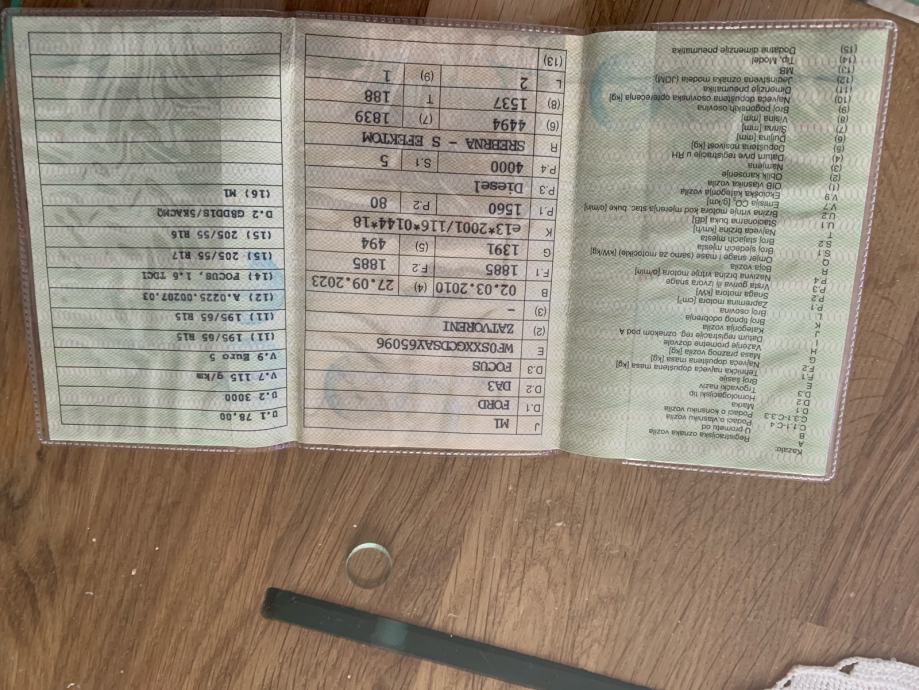 Kazalo:
A Registracijska oznaka vozila
B U prometu od
C.1.1-C.4 Podaci o vlasniku vozila
C.3.1-C.3.3 Podaci o korisniku vozila
D.1 Marka
D.2 Homologacijski tip
D.3 Trgovački naziv
E Broj šasije
F.1 Tehnička najveća dopuštena masa [kg]
F.2 Najveća dopuštena masa [kg]
G Masa praznog vozila [kg]
H Važenje prometne dozvole
I Datum registracije reg. oznakom pod A
J Kategorija vozila
K Broj tipnog odobrenja
L Broj osovina
P.1 Zapremnina motora [cm³]
P.2 Snaga motora [kW]
P.3 Vrsta goriva ili izvora snage
P.4 Nazivna brzina vrtnje motora [o/min]
R Boja vozila
Q Omjer snage i mase (samo za motocikle) [kW/kg]
S.1 Broj sjedećih mjesta
S.2 Broj stajaćih mjesta
T Najveća brzina [km/h]
U.1 Stacionarna buka [dB]
U.2 Brzina vrtnje motora kod mjerenja stac. buke [o/min]
V.7 Emisija CO₂ [g/km]
V.9 Ekološka kategorija vozila
(1) OIB vlasnika vozila
(2) Oblik karoserije
(3) Namjena
(4) Datum prve registracije u RH
(5) Dopuštena nosivost [kg]
(6) Duljina [mm]
(7) Širina [mm]
(8) Visina [mm]
(9) Broj pogonskih osovina
(10) Najveća dopuštena osovinska opterećenja [kg]
(11) Dimenzije pneumatika
(12) Jedinstvena oznaka modela (JOM)
(13) MB
(14) Tip, Model
(15) Dodatne dimenzije pneumatika
J M1
D.1 FORD
D.2 DA3
D.3 FOCUS
E WF0SXXGCDSAY65096
(2) ZATVORENI
(3) –
B 02.03.2010 (4) 27.09.2023
F.1 1885 F.2 1885
G 1391 (5) 494
K e13*2001/116*0144*18
P.1 1560 P.2 80
P.3 Diesel
P.4 4000 S.1 5
R SREBRNA - S EFEKTOM
(6) 4494 (7) 1839
(8) 1537 T 188
L 2 (9) 1
(13)
U.1 78,00
U.2 3000
V.7 115 g/kg
V.9 Euro 5
(11) 195/65 R15
(11) 195/65 R15
(12) A.0225.00207.03
(14) FOCUS 1.6 TDCI
(15) 205/55 R17
(15) 205/55 R16
D.2 G8DD1S/5KACMQ
(16) M1